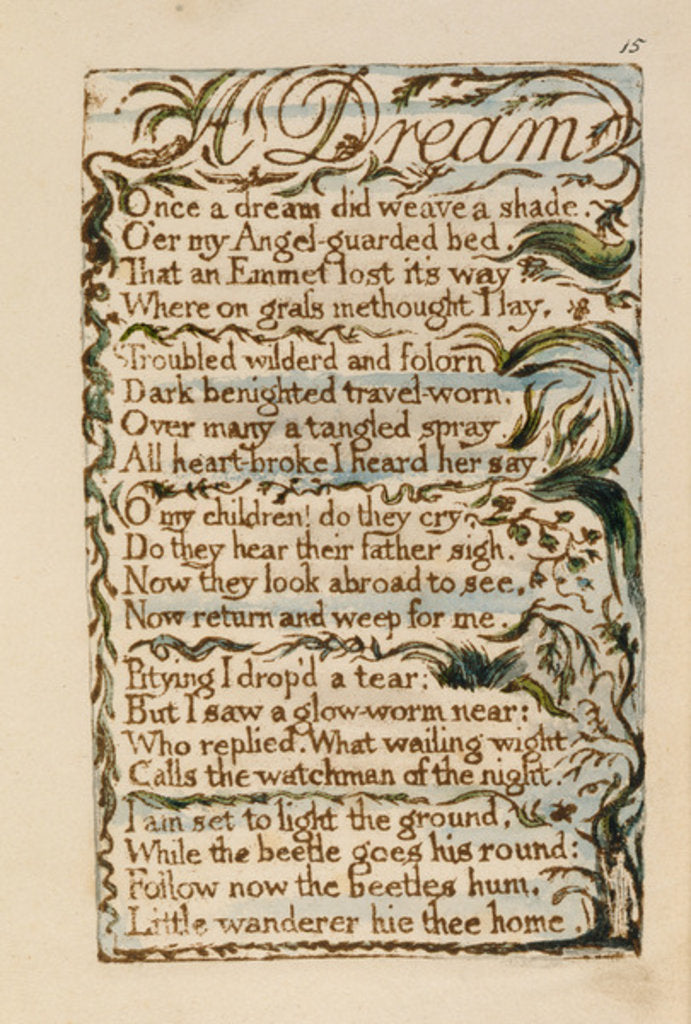 15
A Dream
Once a dream did weave a shade.
O'er my Angel-guarded bed.
That an Emmet lost it's way
Where on graſs methought I lay.
Troubled wilderd and folorn
Dark benighted travel-worn.
Over many a tangled spray
All heart-broke I heard her say.
O my children! do they cry
Do they hear their father sigh.
Now they look abroad to see,
Now return and weep for me.
Pitying I drop'd a tear:
But I saw a glow-worm near:
Who replied. What wailing wight
Calls the watchman of the night.
I am set to light the ground,
While the beetle goes his round:
Follow now the beetles hum,
Little wanderer hie thee home.